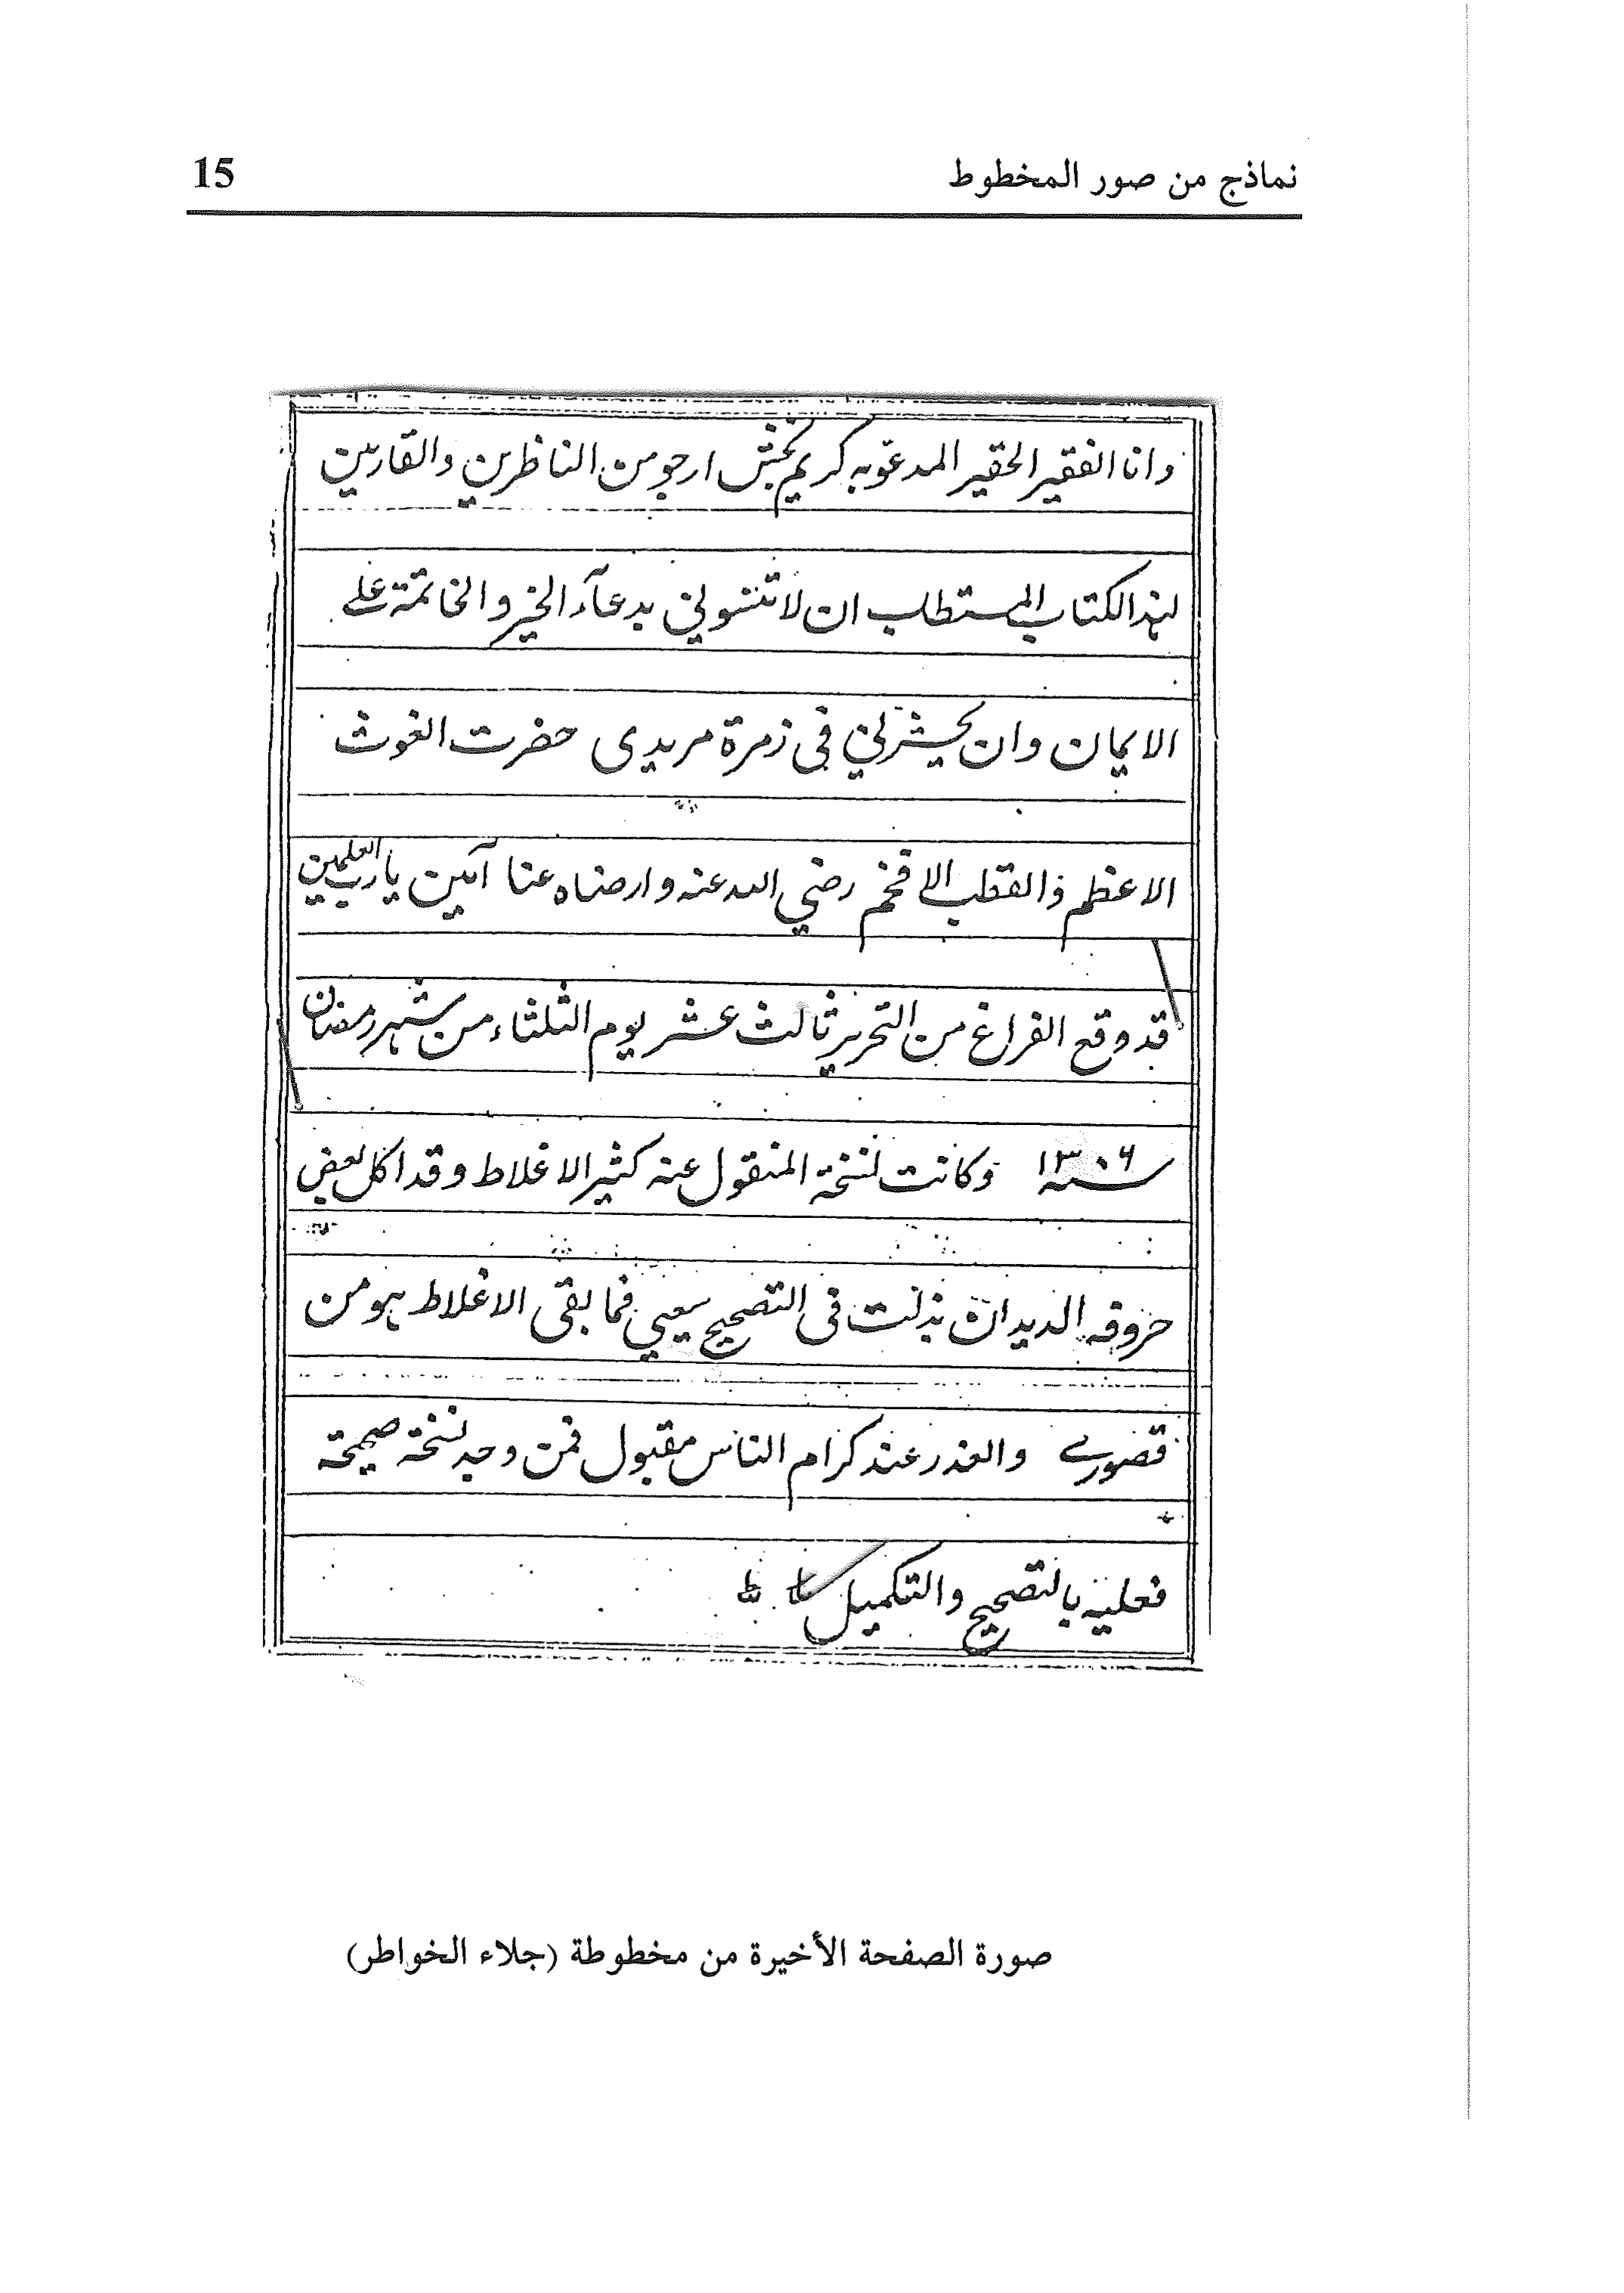 نماذج من صور المخطوط 15
وانا الفقير الحقير المدعو به كريم بخش ارجو من الناظرين والقارين
لهذا الكتاب المستطاب ان لا تنسوني بدعآء الخير والخاتمة على
الايمان وان يحشرني فى زمرة مريدى حضرت الغوث
الاعظم والقطب الافخم رضي الله عنه وارضاه عنا آمين يا رب العلمين
قد وقع الفراغ من التحرير ثالث عشر يوم الثلثاء من شهر رمضان
سنه ١٣٠٦ وكانت نسخة المنقول عنه كثير الاغلاط وقد اكل بعض
حروفه الديدان بذلت فى التصحيح سعيي فما بقى الاغلاط هو من
قصورے والعذر عند كرام الناس مقبول فمن وجد نسخة صحيحة
فعليه بالتصحيح والتكميل
صورة الصفحة الأخيرة من مخطوطة (جلاء الخواطر)